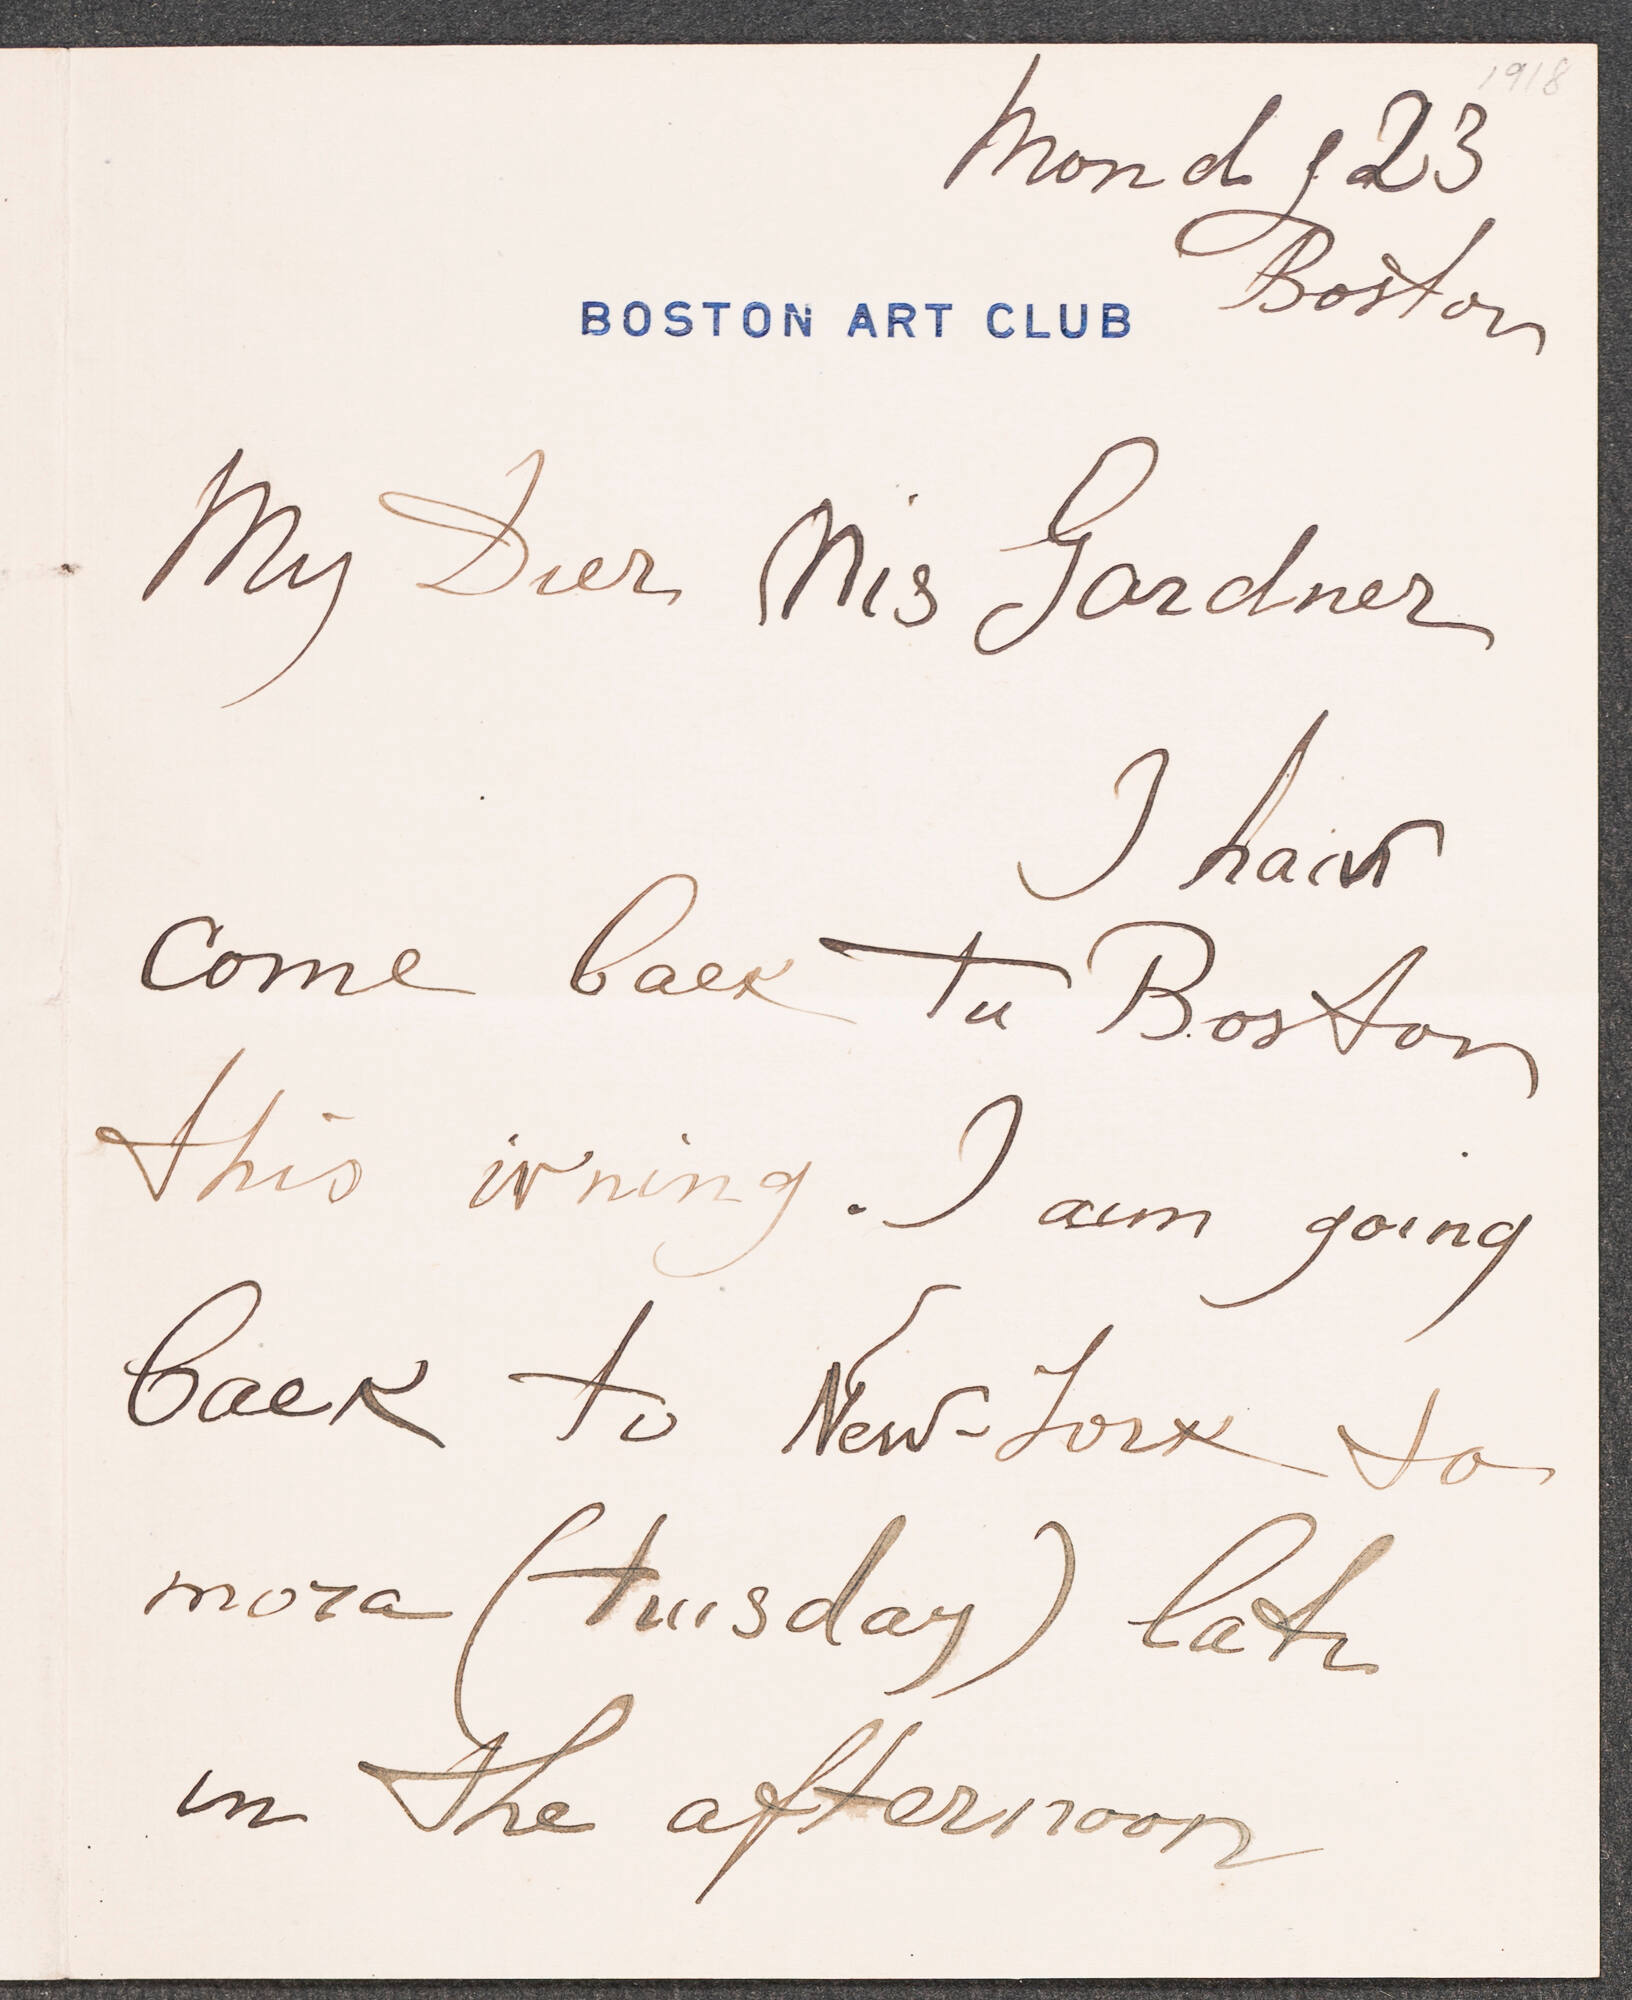 1918
Mondy 23
Boston
BOSTON ART CLUB
My Dier Mis Gardner
I haiv
come back tu Boston
this ivning. I aim going
back to New-York to
mora (tuisday) late
in the afternoon